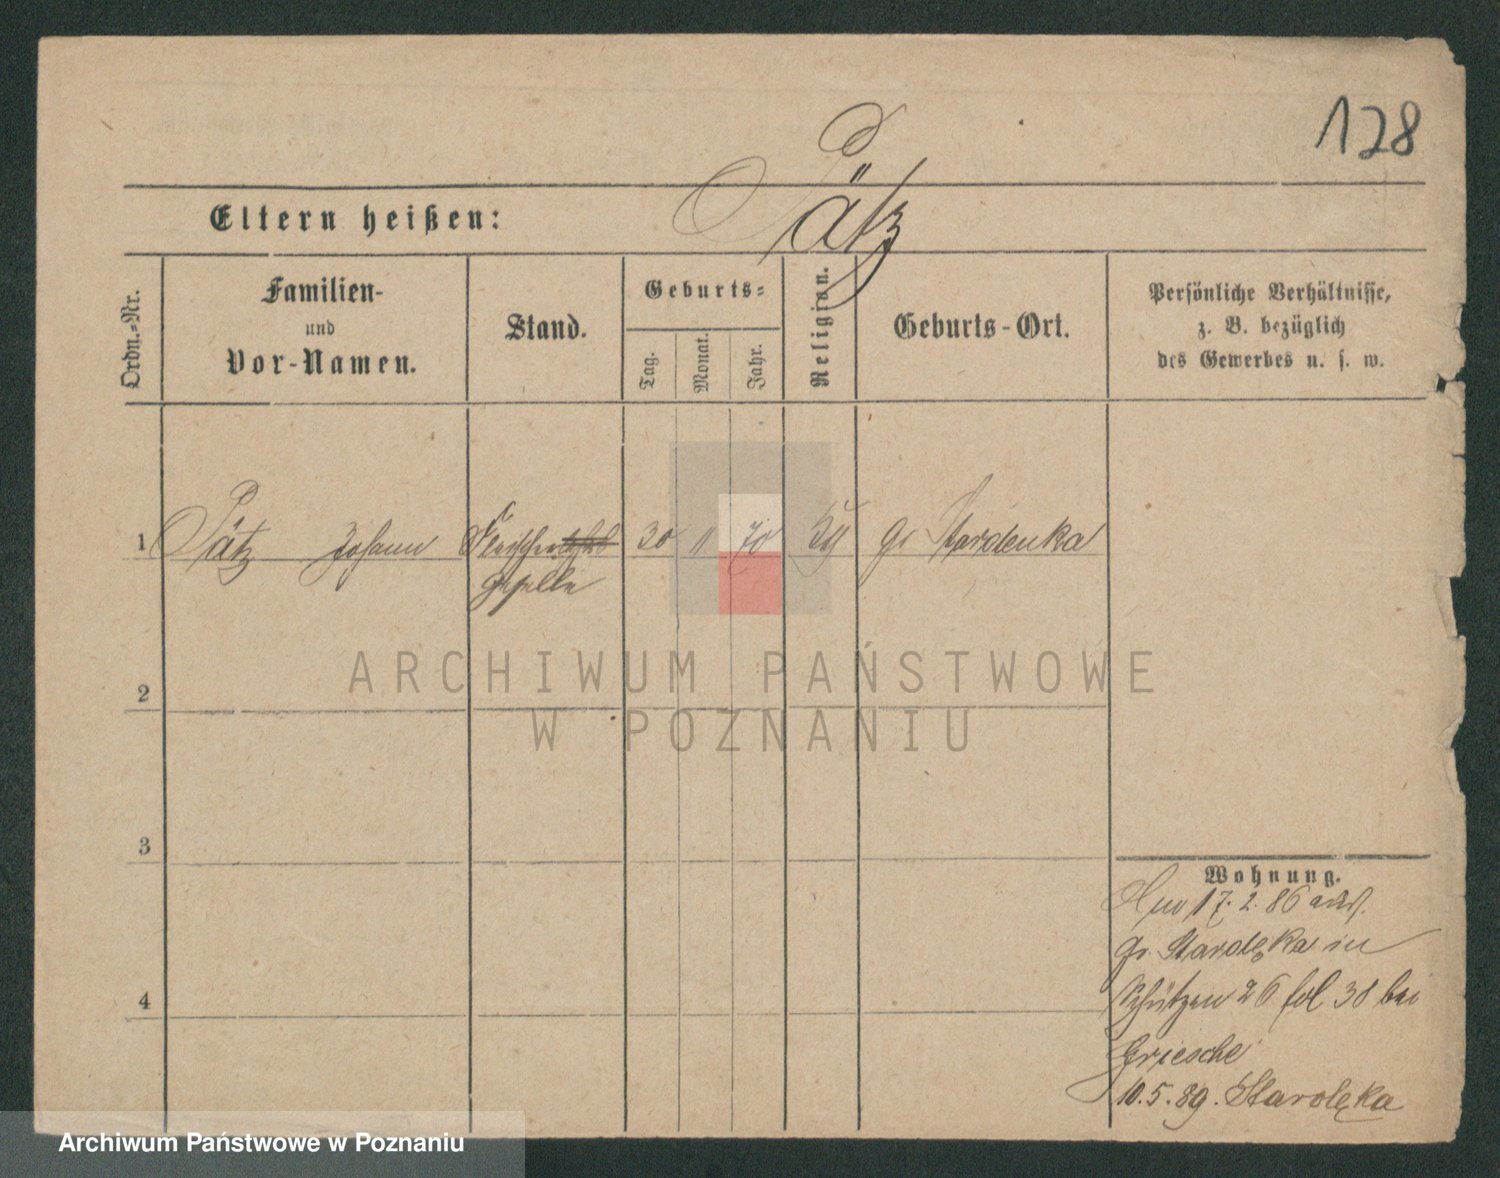 128
Pätz
Eltern heißen:
Ordn.-Nr.
Familien-
und
Vor-Namen.
Stand.
Geburts-
Tag.
Monat.
Jahr.
Religion.
Geburts-Ort.
Persönliche Verhältnisse,
z. B. bezüglich
des Gewerbes u. s. w.
1 Pätz Johann 30 11 70 Gr
geselle
2
3
4
Wohnung.
17. 2. 86
Gr. Starolęka in
Schützen 26 fol 38 bei
Griesche
10.5.89. Starolęka
ARCHIWUM PAŃSTWOWE
W POZNANIU
Archiwum Państwowe w Poznaniu